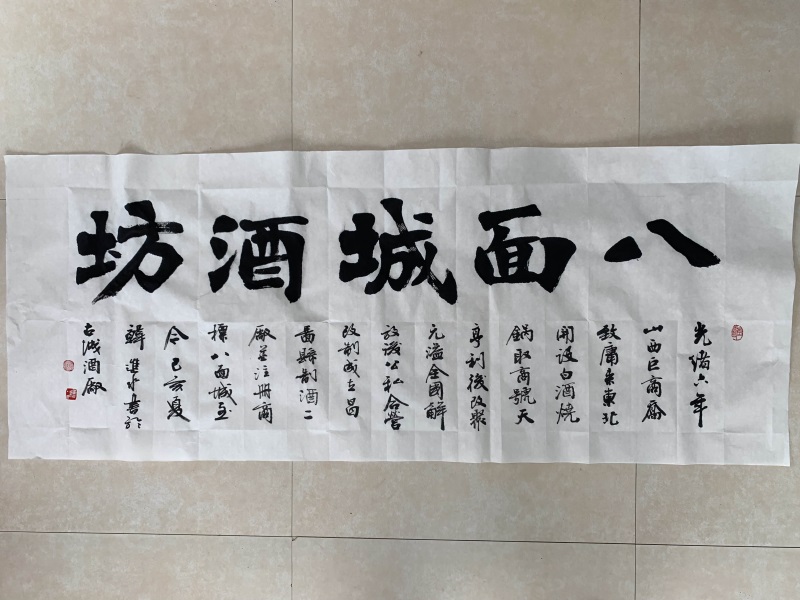 八面城酒坊
光緒六年
山西巨商喬
致庸來東北
開设白酒燒
鍋取商號天
亨利後改聚
元溢全國解
放後公私合營
改制成立昌
圖縣制酒二
廠並注冊商
標八面城至
今己亥夏
韓進書於
古城酒廠